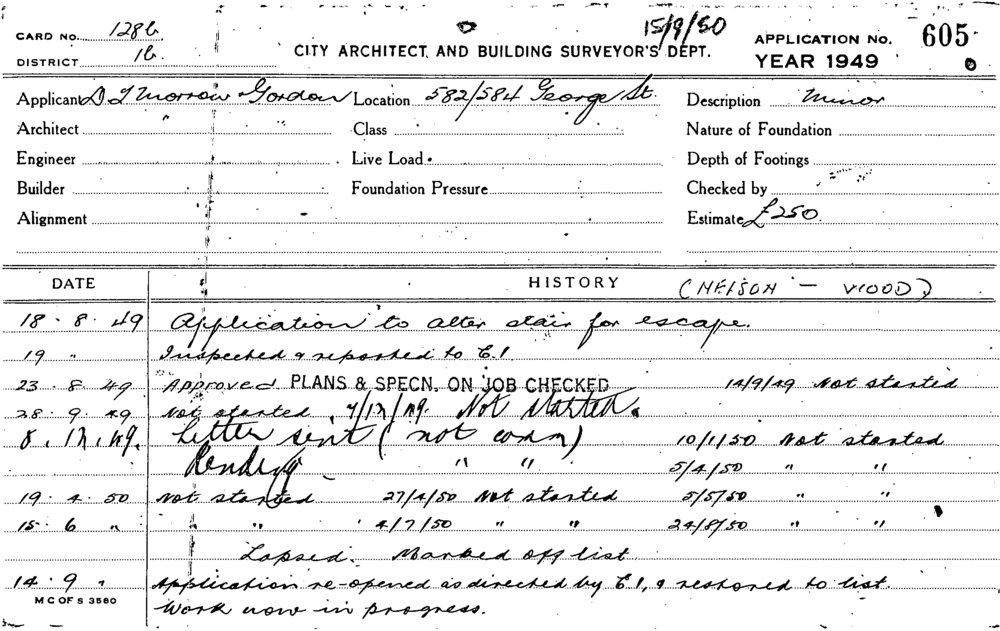 15/9/50
CARD NO. 1286 CITY ARCHITECT, AND BUILDING SURVEYOR'S DEPT. APPLICATION NO. 605
DISTRICT 16 YEAR 1949
Applicant D T Morrow & Gordon Location 582/584 George St. Description Minor
Architect Class Nature of Foundation
Engineer Live Load Depth of Footings
Builder Foundation Pressure Checked by
Alignment Estimate £250.
DATE HISTORY (NELSON - WOOD)
18 . 8 . 49 Application to alter stair for escape.
19 " Inspected & reported to E.I
23 . 8 . 49 Approved PLANS & SPECN. ON JOB CHECKED 14/9/49 Not started
28 . 9 . 49 Not started . 7/12/49. Not started.
8 . 12 . 49. Letter sent (not comm) 10/1/50 Not started
Pending " " 5/4/50 " "
19 . 4 . 50 Not started 27/4/50 Not started 5/5/50 " "
15 . 6 " " 4/7/50 " " 24/8/50 " "
Lapsed. Marked off list
14 . 9 " Application re-opened as directed by E.I, & restored to list.
M C OF S 3580 Work now in progress.